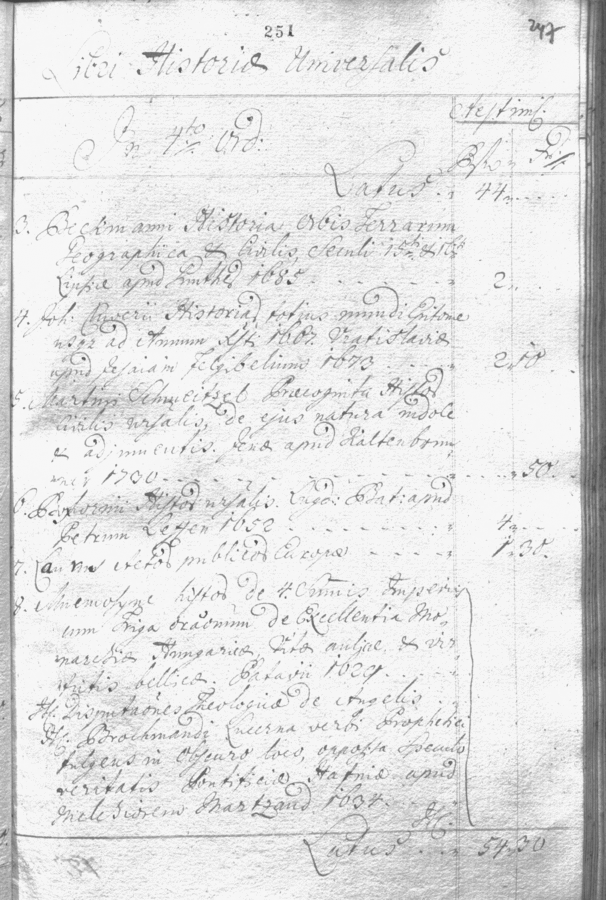 251
247
Libri Historiæ Universalis
Aestim:
In 4to Ord:
Rf Xr
Latus 44
3. Beckmanni Historia Orbis Terrarum
Geographica & Civilis, Seculi 15ti & 16ti
Lipsiæ apud 1685 2
4. Joh: Cluverii Historiar totjus mundi Epitome
usqz ad Annum Xti 1667. Vratislaviæ
apud Jesaiam Felgibelium 1673 2 50
5. Martini Schmeitzel Præcognita Histor
Civilis ursalis, de ejus natura indole
& adjumentis. Jenæ apud Kaltenbrun
ner 1730 50
6. Boxhornii Histor ursalis. Lugd: Bat: apud
Petrum Leffen 1652 4
7. Actor publicor Europæ 1 30
8. Mnemosyne histor de 4. Imperiis
cum triga orãonum de Excellentia Mo,
narchiæ Hungaricæ, Vitæ aulicæ, & vir
tutis bellicæ. Patavii 1629.
It. Disputãones Theologicæ de Angelis
It. Brochmandi Lucerna verbi Prophetici
fulgens in obscuro loco, opposita Speculo
veritatis Pontificiæ Hafniæ apud
Melchiorem Martzan 1634.
It.
Latus 54 30